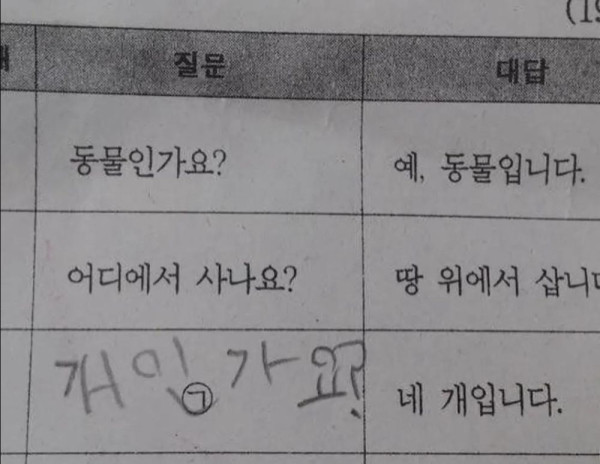 (19
질문 대답
동물인가요? 예, 동물입니다.
어디에서 사나요? 땅 위에서 삽니
개인가요? ㉠ 네 개입니다.